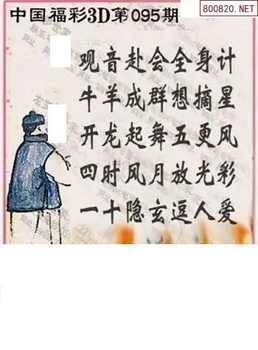 中国福彩3D第095期
800820.NET
观音赴会全身计
牛羊成群想摘星
开龙起舞五更风
四时风月放光彩
一十隐玄逗人爱